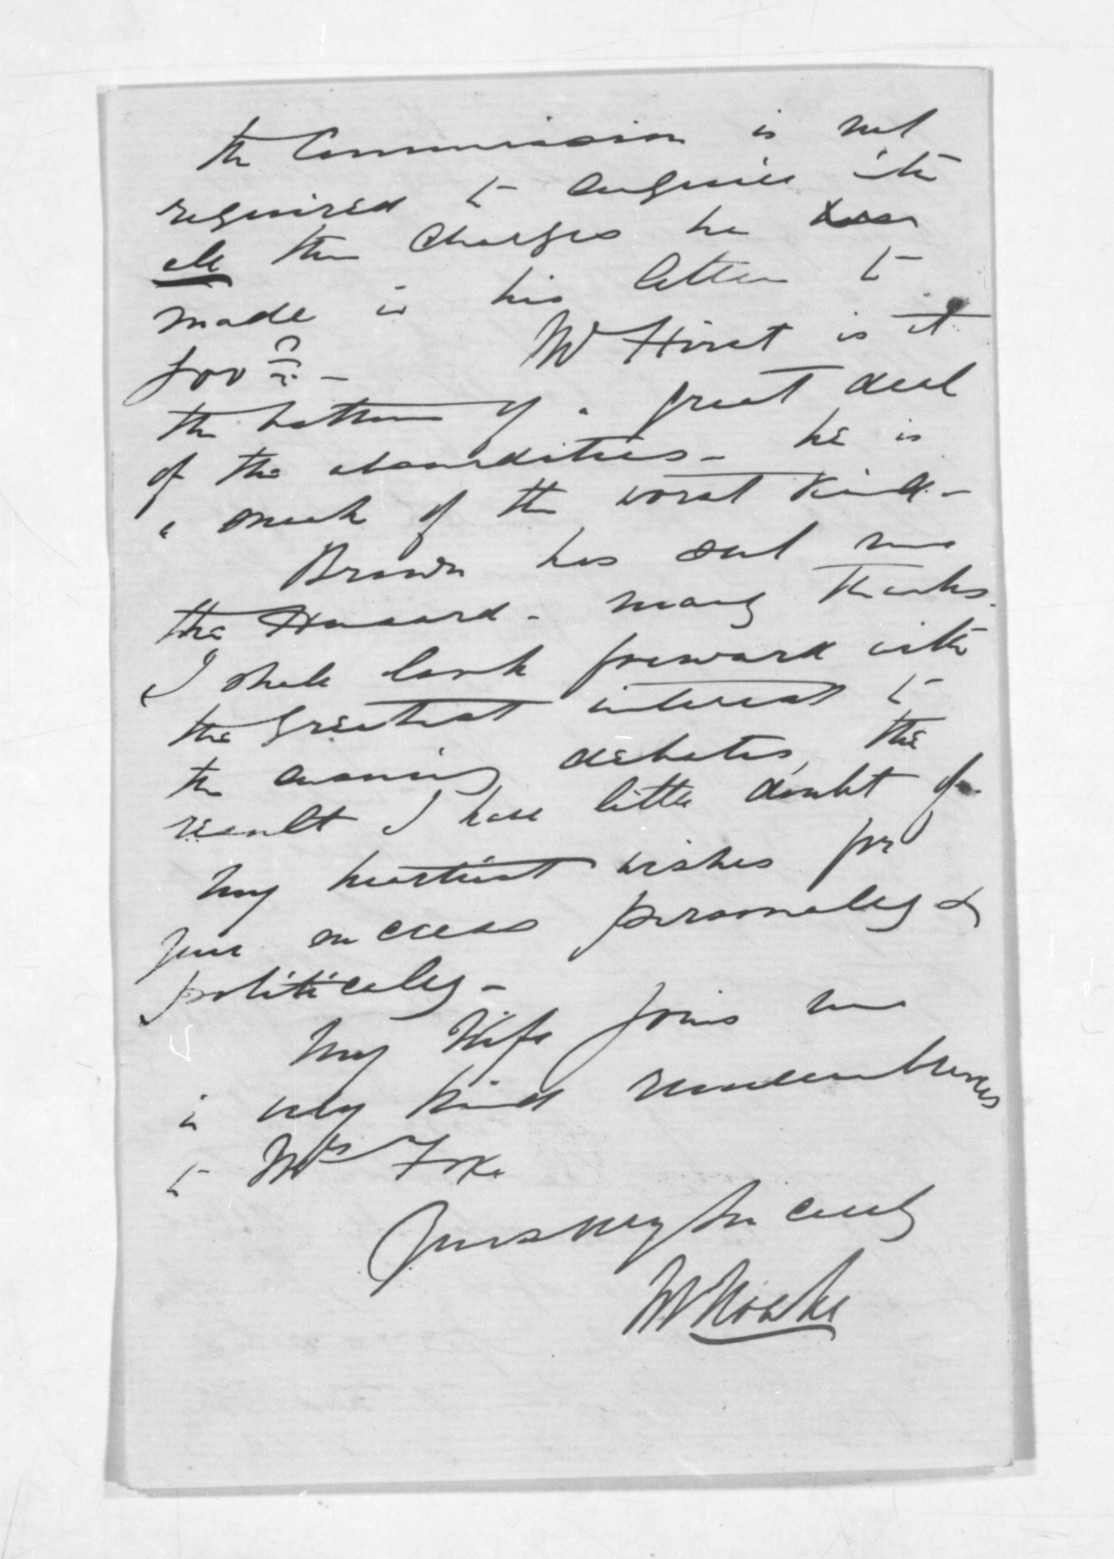 the Commission is not
required to enquire into
all the charges he has
made in his letter to
Govt - Mr Hirst is at
the bottom of a great deal
of the absurdities - he is
a sneak of the worst kind -
Brown has sent me
the Hansard - many thanks.
I shall look forward with
the greatest interest to
the ensuing debates, the
result I have little doubt of
My heartiest wishes for
your success personally &
politically -
My Wife joins me
in very kind remembrances
to Mrs Fox.
Yours very sincerely
W